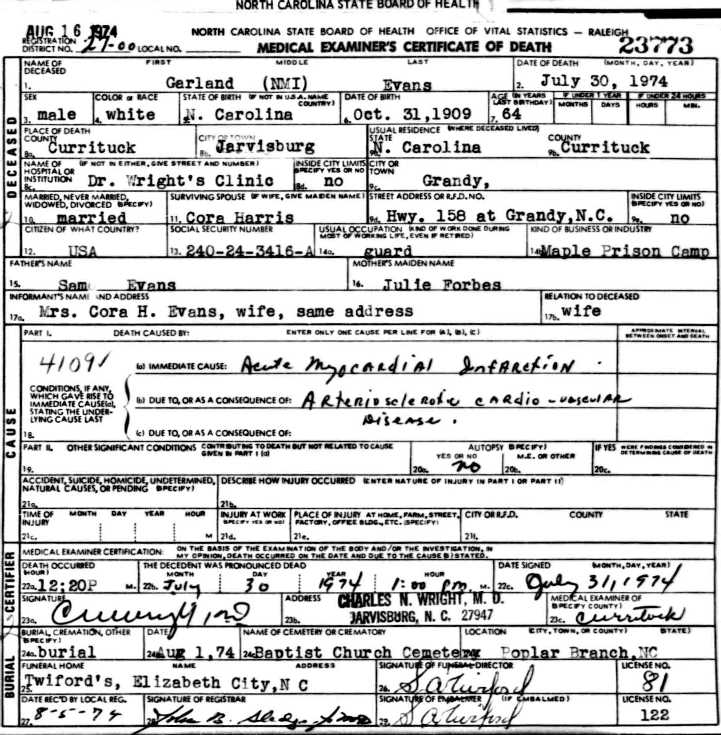 NORTH CAROLINA STATE BOARD OF HEALTH
AUG 16 1974
NORTH CAROLINA STATE BOARD OF HEALTH OFFICE OF VITAL STATISTICS - RALEIGH
REGISTRATION DISTRICT NO. 27-00 LOCAL NO. MEDICAL EXAMINER'S CERTIFICATE OF DEATH 23773
NAME OF DECEASED FIRST MIDDLE LAST DATE OF DEATH (MONTH, DAY, YEAR)
1. Garland (NMI) Evans 2. July 30, 1974
SEX COLOR OR RACE STATE OF BIRTH (IF NOT IN U.S.A. NAME COUNTRY) DATE OF BIRTH AGE (IN YEARS LAST BIRTHDAY) IF UNDER 1 YEAR IF UNDER 24 HOURS
MONTHS DAYS HOURS MIN.
3. male 4. white 5. N. Carolina 6. Oct. 31,1909 7. 64
PLACE OF DEATH COUNTY CITY OR TOWN USUAL RESIDENCE (WHERE DECEASED LIVED) STATE COUNTY
8a. Currituck 8b. Jarvisburg 9a. N. Carolina 9b. Currituck
NAME OF HOSPITAL OR INSTITUTION (IF NOT IN EITHER, GIVE STREET AND NUMBER) INSIDE CITY LIMITS (SPECIFY YES OR NO) CITY OR TOWN
8c. Dr. Wright's Clinic 8d. no 9c. Grandy,
MARRIED, NEVER MARRIED, WIDOWED, DIVORCED (SPECIFY) SURVIVING SPOUSE (IF WIFE, GIVE MAIDEN NAME) STREET ADDRESS OR R.F.D. NO. INSIDE CITY LIMITS (SPECIFY YES OR NO)
10. married 11. Cora Harris 9d. Hwy. 158 at Grandy,N.C. 9e. no
CITIZEN OF WHAT COUNTRY? SOCIAL SECURITY NUMBER USUAL OCCUPATION (KIND OF WORK DONE DURING MOST OF WORKING LIFE, EVEN IF RETIRED) KIND OF BUSINESS OR INDUSTRY
12. USA 13. 240-24-3416-A 14a. guard 14b. Maple Prison Camp
FATHER'S NAME MOTHER'S MAIDEN NAME
15. Sam Evans 16. Julie Forbes
INFORMANT'S NAME AND ADDRESS RELATION TO DECEASED
17a. Mrs. Cora H. Evans, wife, same address 17b. wife
PART I. DEATH CAUSED BY: ENTER ONLY ONE CAUSE PER LINE FOR (A), (B), (C) APPROXIMATE INTERVAL BETWEEN ONSET AND DEATH
41091 (a) IMMEDIATE CAUSE: Acute Myocardial Infarction.
CONDITIONS, IF ANY, WHICH GAVE RISE TO IMMEDIATE CAUSE(a), STATING THE UNDERLYING CAUSE LAST
(b) DUE TO, OR AS A CONSEQUENCE OF: Arteriosclerotic cardio-vascular
Disease.
18. (c) DUE TO, OR AS A CONSEQUENCE OF:
PART II. OTHER SIGNIFICANT CONDITIONS CONTRIBUTING TO DEATH BUT NOT RELATED TO CAUSE GIVEN IN PART I (a) AUTOPSY (SPECIFY) YES OR NO M.E. OR OTHER IF YES WERE FINDINGS CONSIDERED IN DETERMINING CAUSE OF DEATH
19. 20a. no 20b. 20c.
ACCIDENT, SUICIDE, HOMICIDE, UNDETERMINED, NATURAL CAUSES, OR PENDING (SPECIFY) DESCRIBE HOW INJURY OCCURRED (ENTER NATURE OF INJURY IN PART I OR PART II)
21a. 21b.
TIME OF INJURY MONTH DAY YEAR HOUR INJURY AT WORK (SPECIFY YES OR NO) PLACE OF INJURY AT HOME, FARM, STREET, FACTORY, OFFICE BLDG., ETC. (SPECIFY) CITY OR R.F.D. COUNTY STATE
21c. M 21d. 21e. 21f.
MEDICAL EXAMINER CERTIFICATION: ON THE BASIS OF THE EXAMINATION OF THE BODY AND/OR THE INVESTIGATION, IN MY OPINION, DEATH OCCURRED ON THE DATE AND DUE TO THE CAUSE(S) STATED.
DEATH OCCURRED (HOUR) THE DECEDENT WAS PRONOUNCED DEAD MONTH DAY YEAR HOUR DATE SIGNED (MONTH, DAY, YEAR)
22a. 12:20P M. 22b. July 30 1974 1:00 pm M. 22c. July 31, 1974
SIGNATURE ADDRESS CHARLES N. WRIGHT, M. D. MEDICAL EXAMINER OF (SPECIFY COUNTY)
23a. 23b. JARVISBURG, N. C. 27947 23c. Currituck
BURIAL, CREMATION, OTHER (SPECIFY) DATE NAME OF CEMETERY OR CREMATORY LOCATION (CITY, TOWN, OR COUNTY) (STATE)
24a. burial 24b. Aug 1,74 24c. Baptist Church Cemetery Poplar Branch,NC
FUNERAL HOME NAME ADDRESS SIGNATURE OF FUNERAL DIRECTOR LICENSE NO.
25. Twiford's, Elizabeth City,N C 26. S A Twiford 81
DATE REC'D BY LOCAL REG. SIGNATURE OF REGISTRAR SIGNATURE OF EMBALMER (IF EMBALMED) LICENSE NO.
27. 8-5-74 28. John B. 29. S A Twiford 122
DECEASED
CAUSE
CERTIFIER
BURIAL